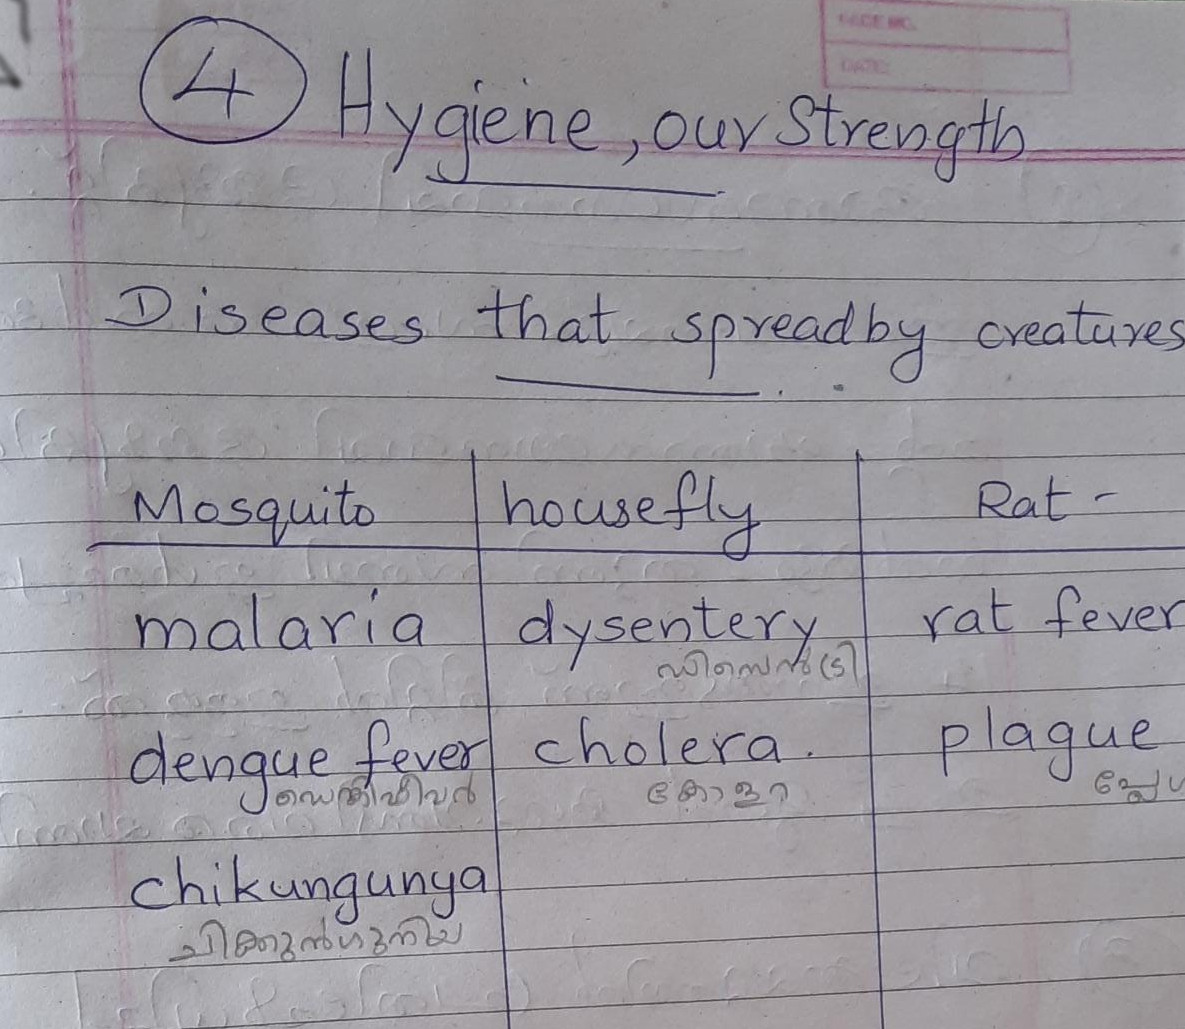 PAGE NO.
DATE:
4 Hygiene, our Strength
Diseases that spread by creatures
Mosquito housefly Rat -
malaria dysentery rat fever
ഡിസെൻട്രി
dengue fever cholera. plague
ഡെങ്കിഫീവർ കോളറ
chikungunya
ചിക്കുൻഗുനിയ